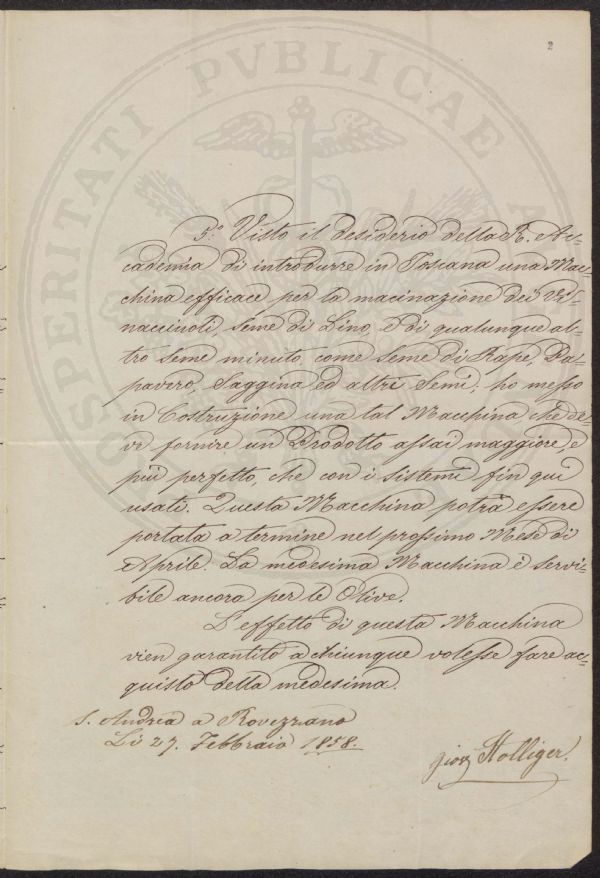 2
PROSPERITATI PVBLICAE A
5.° Visto il desiderio della R. Ac=
cademia di introdurre in Toscana una Mac=
china efficace per la macinazione dei Vi=
nacciuoli, Seme di Lino, e di qualunque al=
tro seme minuto, come Seme di Rape, Pa=
pavero, Saggina ed altri Semi; ho messo
in Costruzione una tal Macchina che de=
ve fornire un Prodotto assai maggiore, e
più perfetto, che con i sistemi fin qui
usati. Questa Macchina potrà essere
portata a termine nel prossimo Mese di
Aprile. La medesima Macchina è servi=
bile ancora per le Olive.
L'effetto di questa Macchina
vien garantito a chiunque volesse fare ac=
quisto della medesima.
S. Andrea a Rovezzano
Li 27. Febbraio 1858.
Holliger.